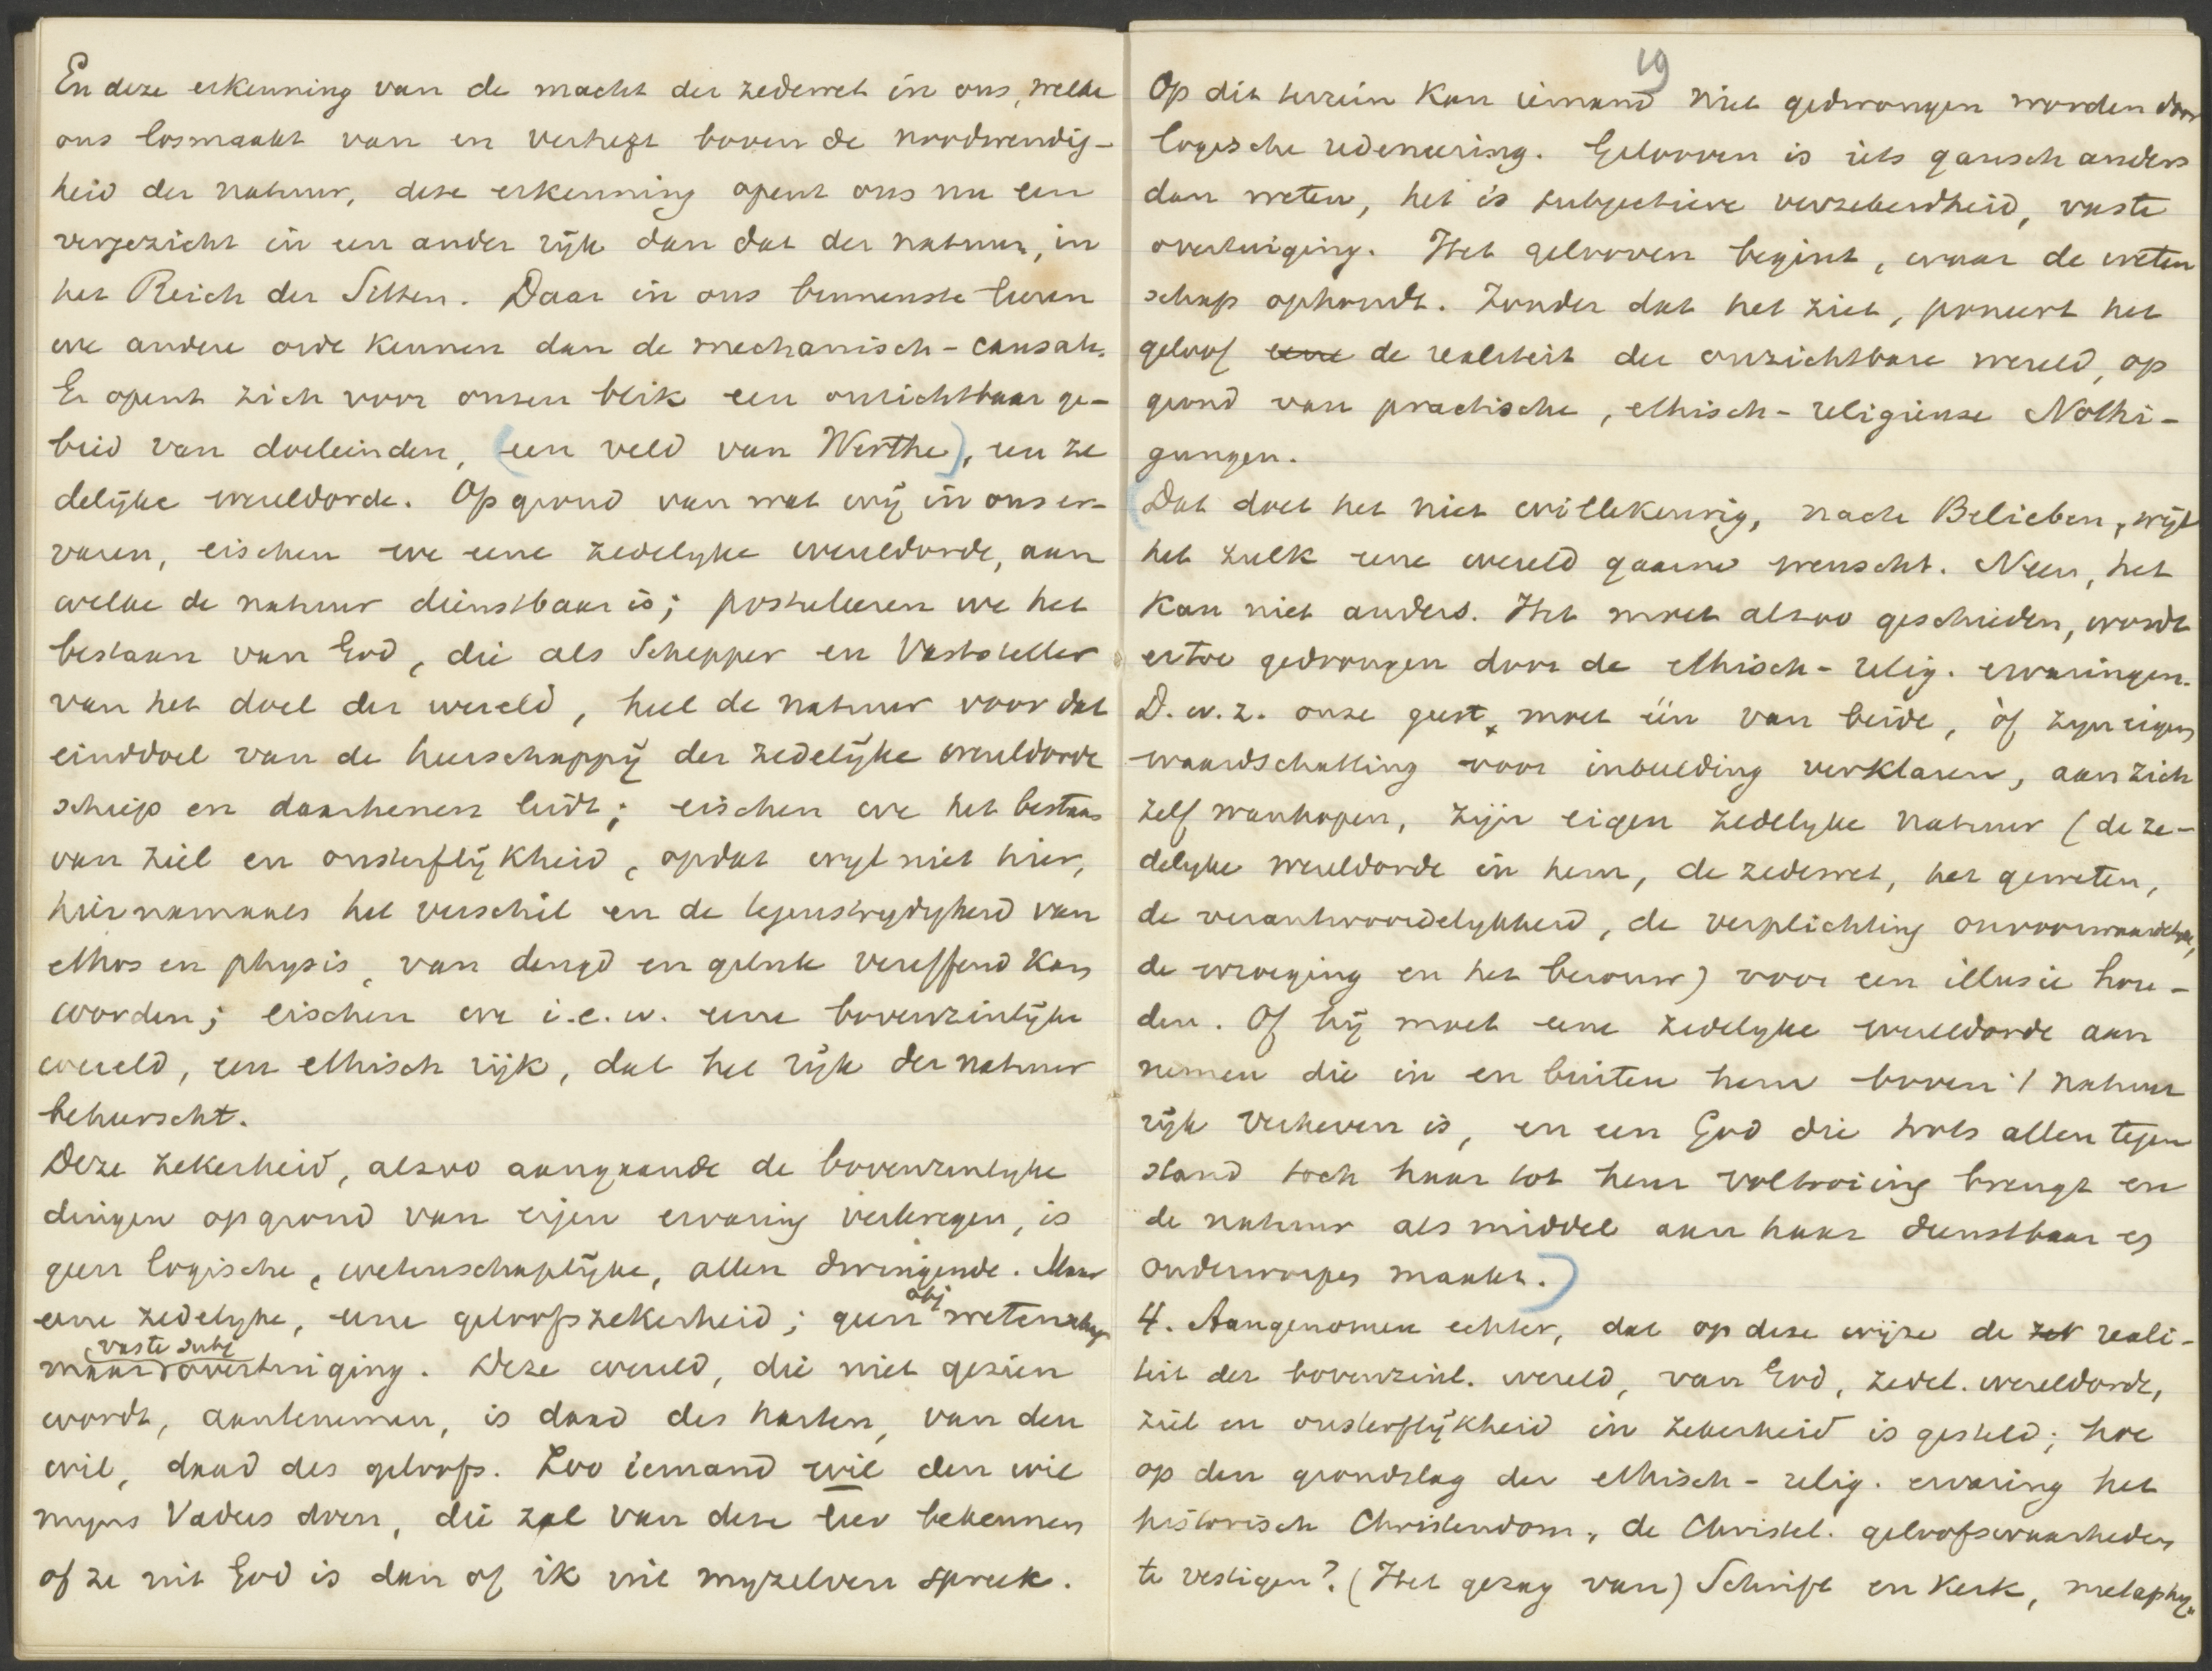 En deze erkenning van de macht der zedewet in ons, welke
ons losmaakt van en verheft boven de noodwendig-
heid der natuur, deze erkenning opent ons nu een
vergezicht in een ander rijk dan dat der natuur, in
het Reich der Sitten. Daar in ons binnenste leeren
we andere orde kennen dan de mechanisch-causale.
Er opent zich voor onzen blik een onzichtbaar ge-
bied van doeleinden, (een veld van Werthe), een ze
delijke wereldorde. Op grond van wat wij in ons er-
varen, eischen we eene zedelyke wereldorde, aan
welke de natuur dienstbaar is; postuleeren we het
bestaan van God, die als Schepper en Vaststeller
van het doel der wereld, heel de natuur voor dat
einddoel van de heerschappij der zedelijke wereldorde
schiep en daarhenen leidt; eischen we het bestaan
van ziel en onsterflijkheid, opdat wyl niet hier,
hiernamaals het verschil en de tegenstrydigheid van
ethos en physis, van deugd en geluk vereffend kan
worden; eischen we i.e.w. eene bovenzinlijke
wereld, een ethisch rijk, dat het rijk der natuur
beheerscht.
Deze zekerheid, alzoo aangaande de bovenzinlyke
dingen op grond van eigen ervaring verkregen, is
geen logische, wetenschaplijke, allen dwingende. Maar
eene zedelyke, eene geloofszekerheid; geen obj wetenschap
maar vaste subj overtuiging. Deze wereld, die niet gezien
wordt, aantenemen, is daad des harten, van den
wil, daad des geloofs. Zoo iemand wil den wil
myns Vaders doen, die zal van deze leer bekennen
of ze uit God is dan of ik uit myzelven spreek.
19
Op dit terrein kan iemand niet gedwongen worden door
logische redeneering. Gelooven is iets gansch anders
dan weten, het is subjectieve verzekerdheid, vaste
overtuiging. Het gelooven begint, waar de weten
schap ophoudt. Zonder dat het ziet, poneert het
geloof eene de realiteit der onzichtbare wereld, op
grond van practische, ethisch-religieuze Nöthi-
gungen.
(Dat doet het niet willekeurig, nach Belieben, wijl
het zulk eene wereld gaarne wenscht. Neen, het
kan niet anders. Het moet alzoo geschieden, wordt
ertoe gedrongen door de ethisch-relig. ervaringen.
D.w.z. onze geest, moet één van beide, òf zyn eigen
waardschatting voor inbeelding verklaren, aan zich
zelf wanhopen, zijn eigen zedelyke natuur (de ze-
delyke wereldorde in hem, de zedewet, het geweten,
de verantwoordelykheid, de verplichting onvoorwaardelyk,
de wroeging en het berouw) voor een illusie hou-
den. Of hij moet eene zedelyke wereldorde aan
nemen die in en buiten hem boven 't natuur
rijk verheven is, en een God die trots allen tegen
stand toch haar tot hem voltooiing brengt en
de natuur als middel aan haar dienstbaar en
onderworpen maakt.)
4. Aangenomen echter, dat op deze wijze de zek reali-
teit der bovenzinl. wereld, van God, zedel. wereldorde,
ziel en onsterflijkheid in zekerheid is gesteld; hoe
op den grondslag der ethisch-relig. ervaring het
historisch Christendom, de Christel. geloofswaarheden
te vestigen? (Het gezag van) Schrift en Kerk, metaphy-